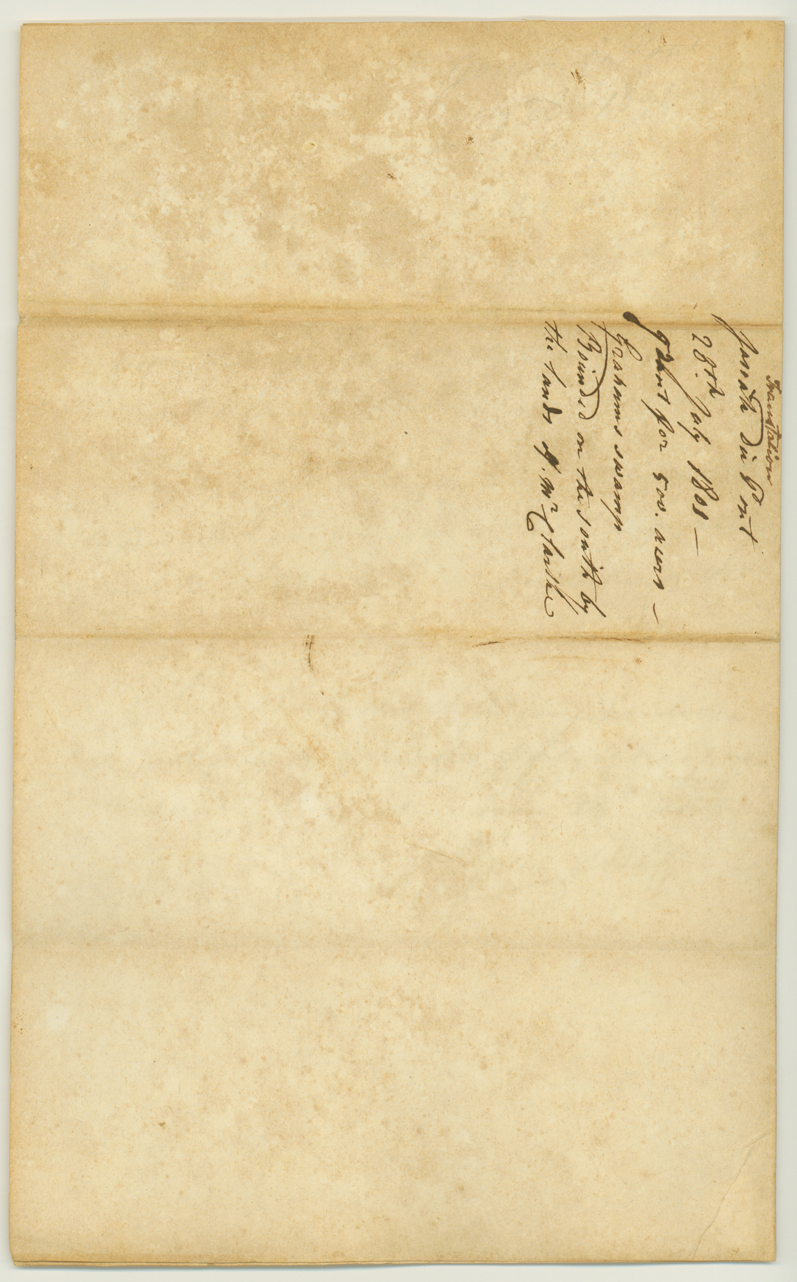 Translation
Josiah Du Pont
28th July 1801 —
Grant for 500. acers —
Grahams swamp
Bounded on the south by
the lands of Mr Clarke